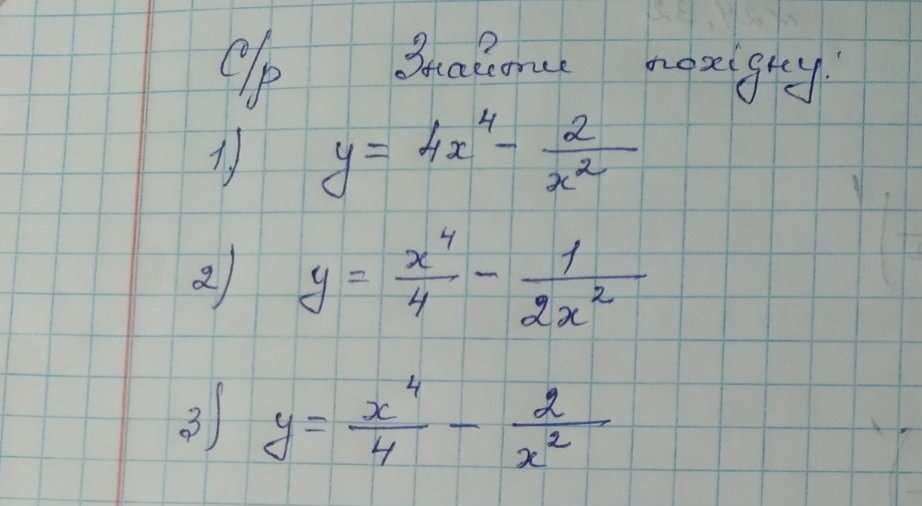 С/р Знайти похідну:
1) y = 4x⁴ - 2/x²
2) y = x⁴/4 - 1/2x²
3) y = x⁴/4 - 2/x²